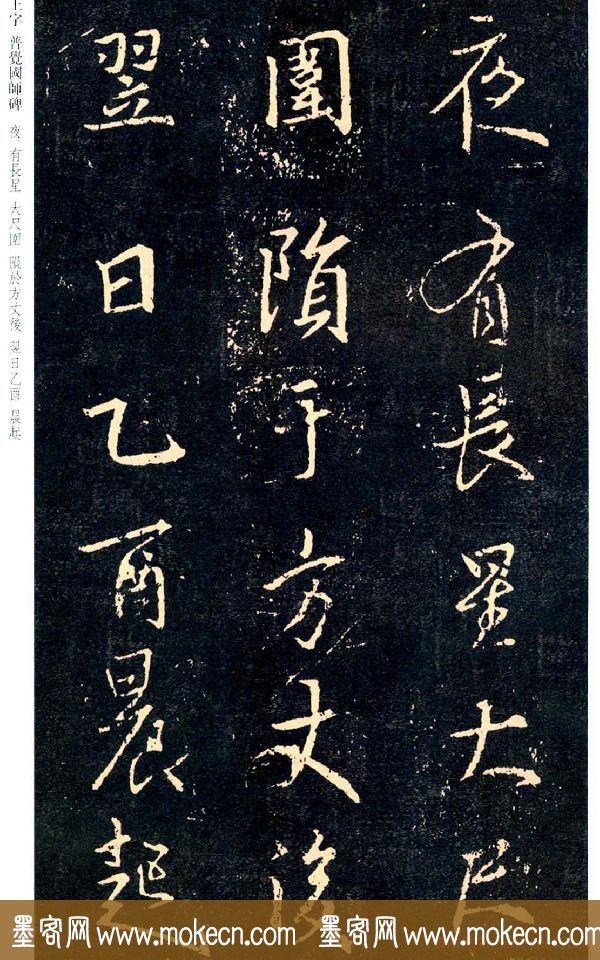 夜有長星大尺
圍隕于方丈後
翌日乙酉晨起
王字 普覺國師碑 夜 有長星 大尺圍 隕於方丈後 翌日乙酉 晨起
墨客网 www.mokecn.com 墨客网 www.mokecn.com